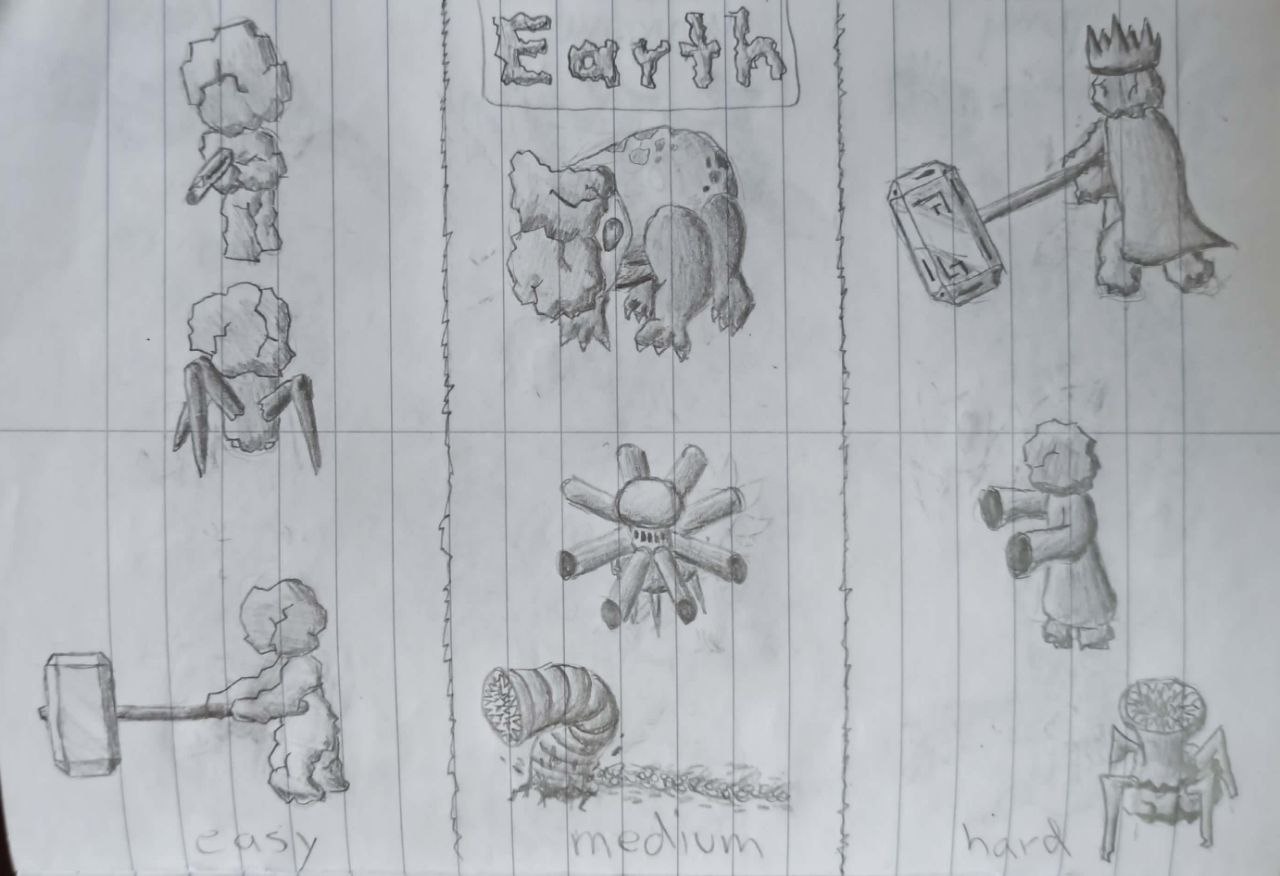 Earth
easy medium hard